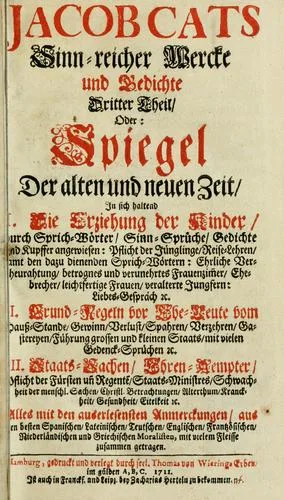 JACOB CATS
Sinn-reicher Wercke
und Gedichte
Dritter Theil/
Oder:
Spiegel
Der alten und neuen Zeit/
In sich haltend
I. Die Erziehung der Kinder/
durch Sprich-Wörter/ Sinn-Sprüche/ Gedichte
und Kupffer angewiesen: Pflicht der Jünglinge/ Reise-Lehren/
samt den dazu dienenden Sprich-Wörtern: Ehrliche Ver-
heurahtung/ betrognes und verunehrtes Frauenzimer/ Ehe-
brecher/ leichtfertige Frauen/ veralterte Jungfern:
Liebes-Gespräch ꝛc.
II. Grund-Regeln vor Ehe-Leute vom
Hauß-Stande/ Gewinn/ Verlust/ Spahren/ Verzehren/ Ga-
stereyen/ Führung grossen und kleinen Staats/ mit vielen
Gedenck-Sprüchen ꝛc.
III. Staats-Sachen/ Ehren-Aempter/
Pflicht der Fürsten uñ Regentē/ Staats-Ministres/ Schwach-
heit der menschl. Sachen/ Christl. Betrachtungen/ Alterthum/ Kranck-
heit/ Gesundheit/ Eitelkeit ꝛc.
Alles mit den auserlesensten Anmerckungen/ aus
den besten Spanischen/ Lateinischen/ Teutschen/ Englischen/ Frantzösischen/
Niederländischen und Griechischen Moralisten, mit vielem Fleisse
zusammen getragen.
Hamburg, gedruckt und verlegt durch seel. Thomas von Wierings Erben
im güldern A, B, C, 1711.
Ist auch in Franckf. und Leipz. bey Zacharias Herteln zu bekommen.